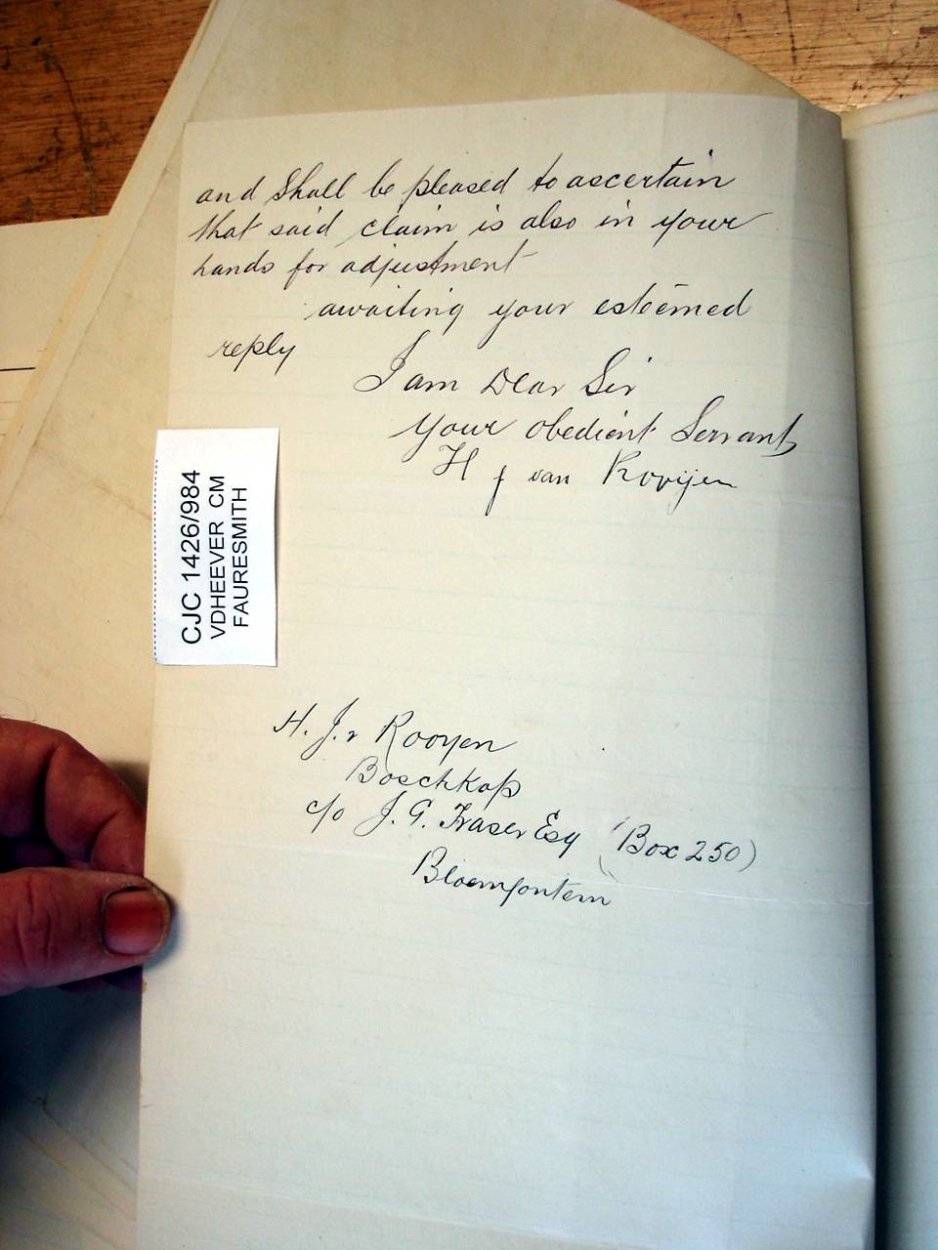 and Shall be pleased to ascertain
that said claim is also in your
hands for adjustment
awaiting your esteemed
reply
I am Dear Sir
your obedient Servant
H J van Rooijen
CJC 1426/984
VDHEEVER CM
FAURESMITH
H. J. v Rooyen
Boschkop
c/o J. G. Fraser Esq (Box 250)
Bloemfontein